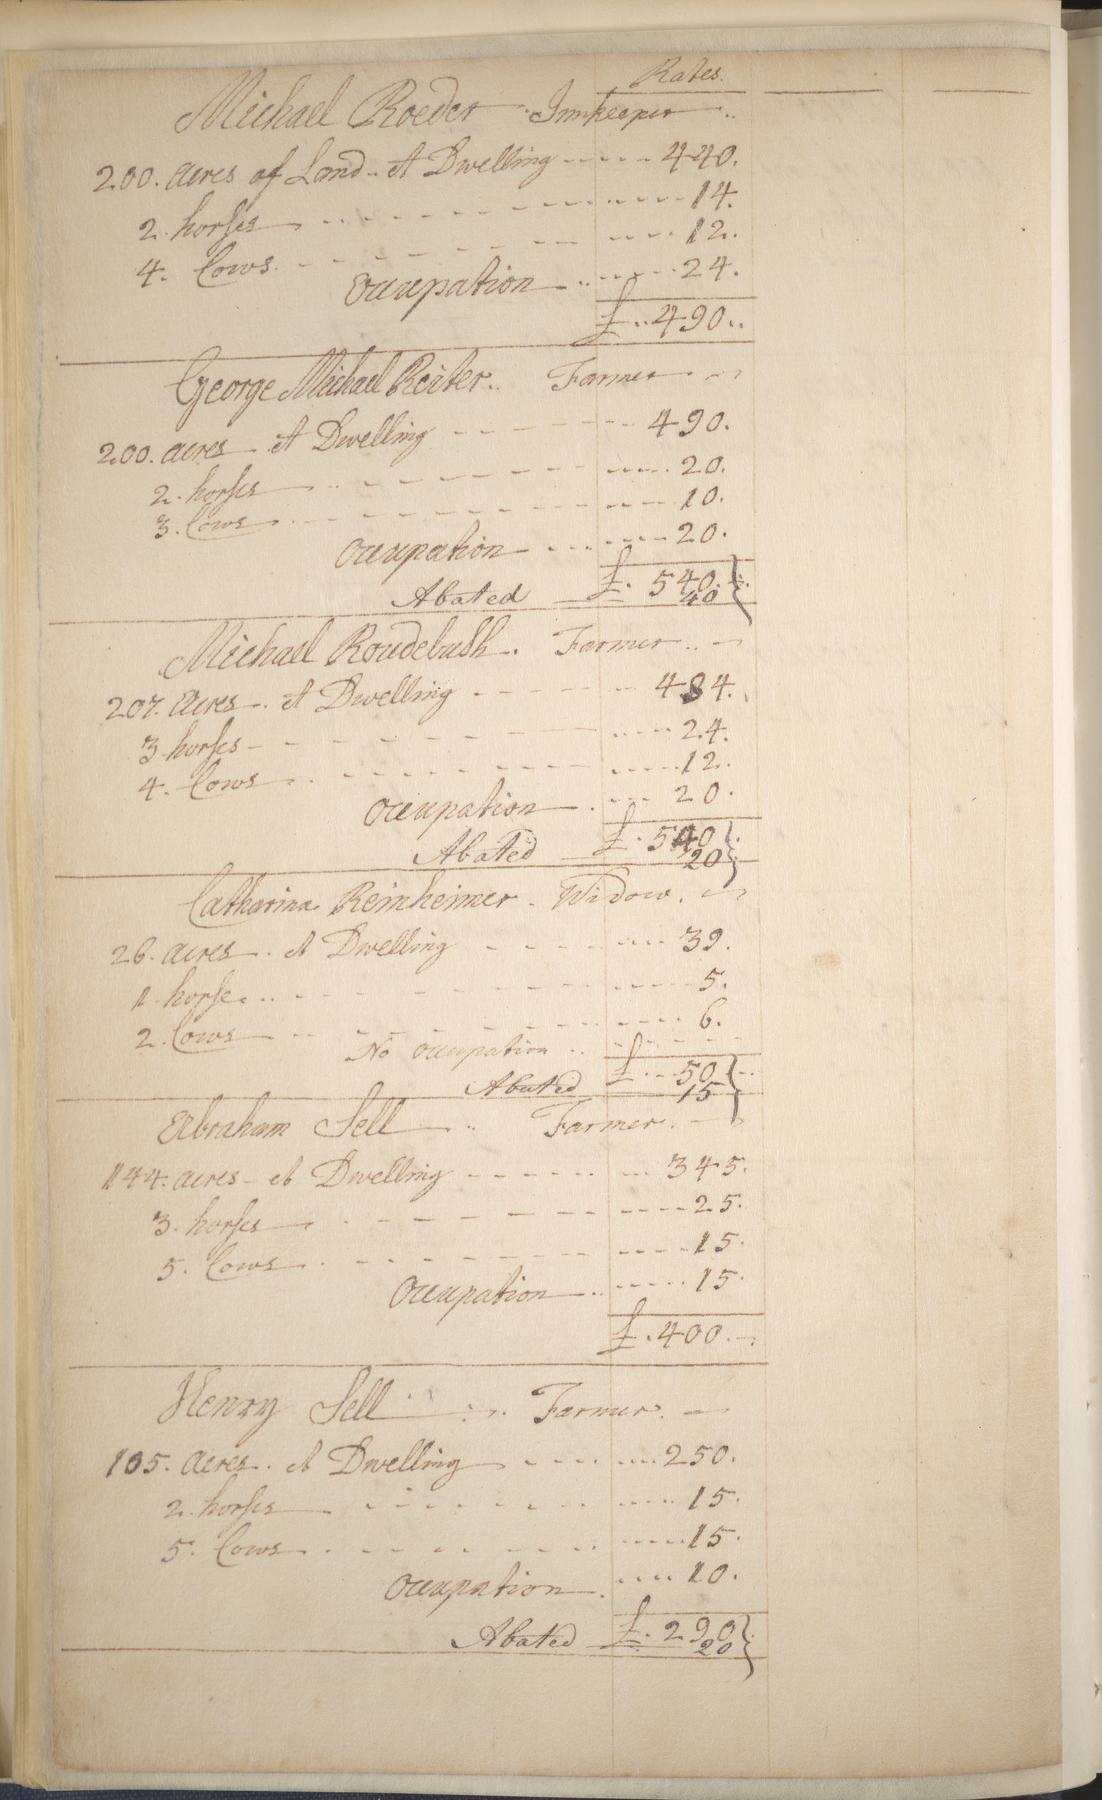 Rates.
Michael Roeder Innkeeper
200. acres of Land.. A Dwelling 440.
2. horses 14.
4. Cows 12.
Occupation 24.
£. 490.
George Michael Reiter.. Farmer
200. acres A Dwelling 490.
2. horses 20.
3. Cows 10.
Occupation 20.
£. 540.
Abated 40
Michael Roudebush. Farmer..
207. acres. A Dwelling 484.
3 horses 24.
4. Cows 12.
Occupation 20.
£. 540
Abated 20
Catharina Reinheimer. Widow.
26. acres. A Dwelling 39.
1 horse 5.
2. Cows 6.
No occupation
£. 50
Abated 15
Abraham Sell Farmer.
144. acres A Dwelling 345.
3. horses 25.
5. Cows 15.
Occupation 15.
£. 400.
Henry Sell Farmer.
105. acres. A Dwelling 250.
2. horses 15.
5. Cows 15.
Occupation 10.
£. 290
Abated 20